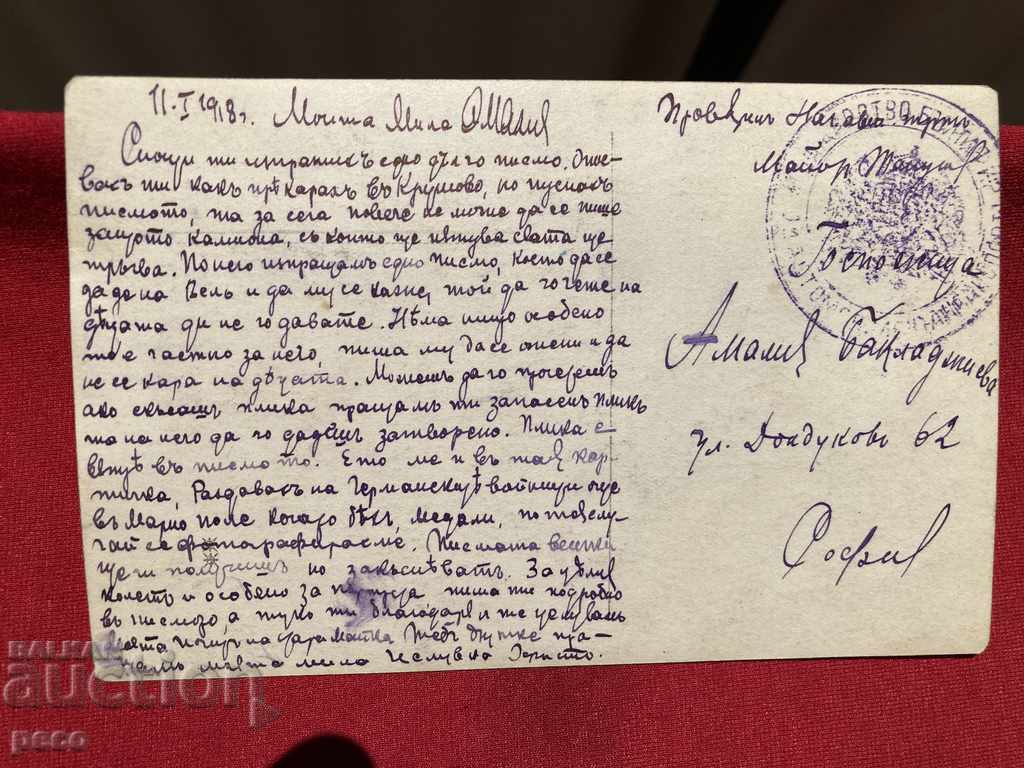 11.-I 1918 г. Моята Мила Амалия
Снощи ти изпратихъ едно дълго писмо. Опис-
вахъ ти какъ прѣкарахъ въ Крушово, но пуснахъ
писмото, та за сега повече не може да се пише
защото камиона, съ който ще пѫтува свата ще
тръгва. По него изпращамъ едно писмо, което да се
даде на Вель и да му се каже, той да го чете на
дѣцата да не го давате. Нѣма нищо особено
то е частно за него, пиша му да се ожени и да
не се кара на дѣцата. Можешъ да го прочетешъ
ако скѫсашъ плика пращамъ ти запасенъ пликъ
та на него да го дадешъ затворено. Плика е
вѫтрѣ въ писмото. Ето ме и въ тая кар-
тичка, Раздавахъ на Германскитѣ войници още
въ Марио поле когато бѣхъ, медали, по тоя слу-
чай се фотографирахме. Писмата всички
ще ги получишъ но закъсняватъ. За цѣлия
колетъ и особено за пиша ти подробно
въ писмото, а тукъ ти благодаря и те цѣлувамъ
моята на майка Тебъ пра-
щамъ моята мила целувка Христо.
Провѣрилъ Началн.
Майоръ
Госпожица
Амалия Бакладжиева
ул. Дондуковъ 62
София
BALKAN
auction
peco